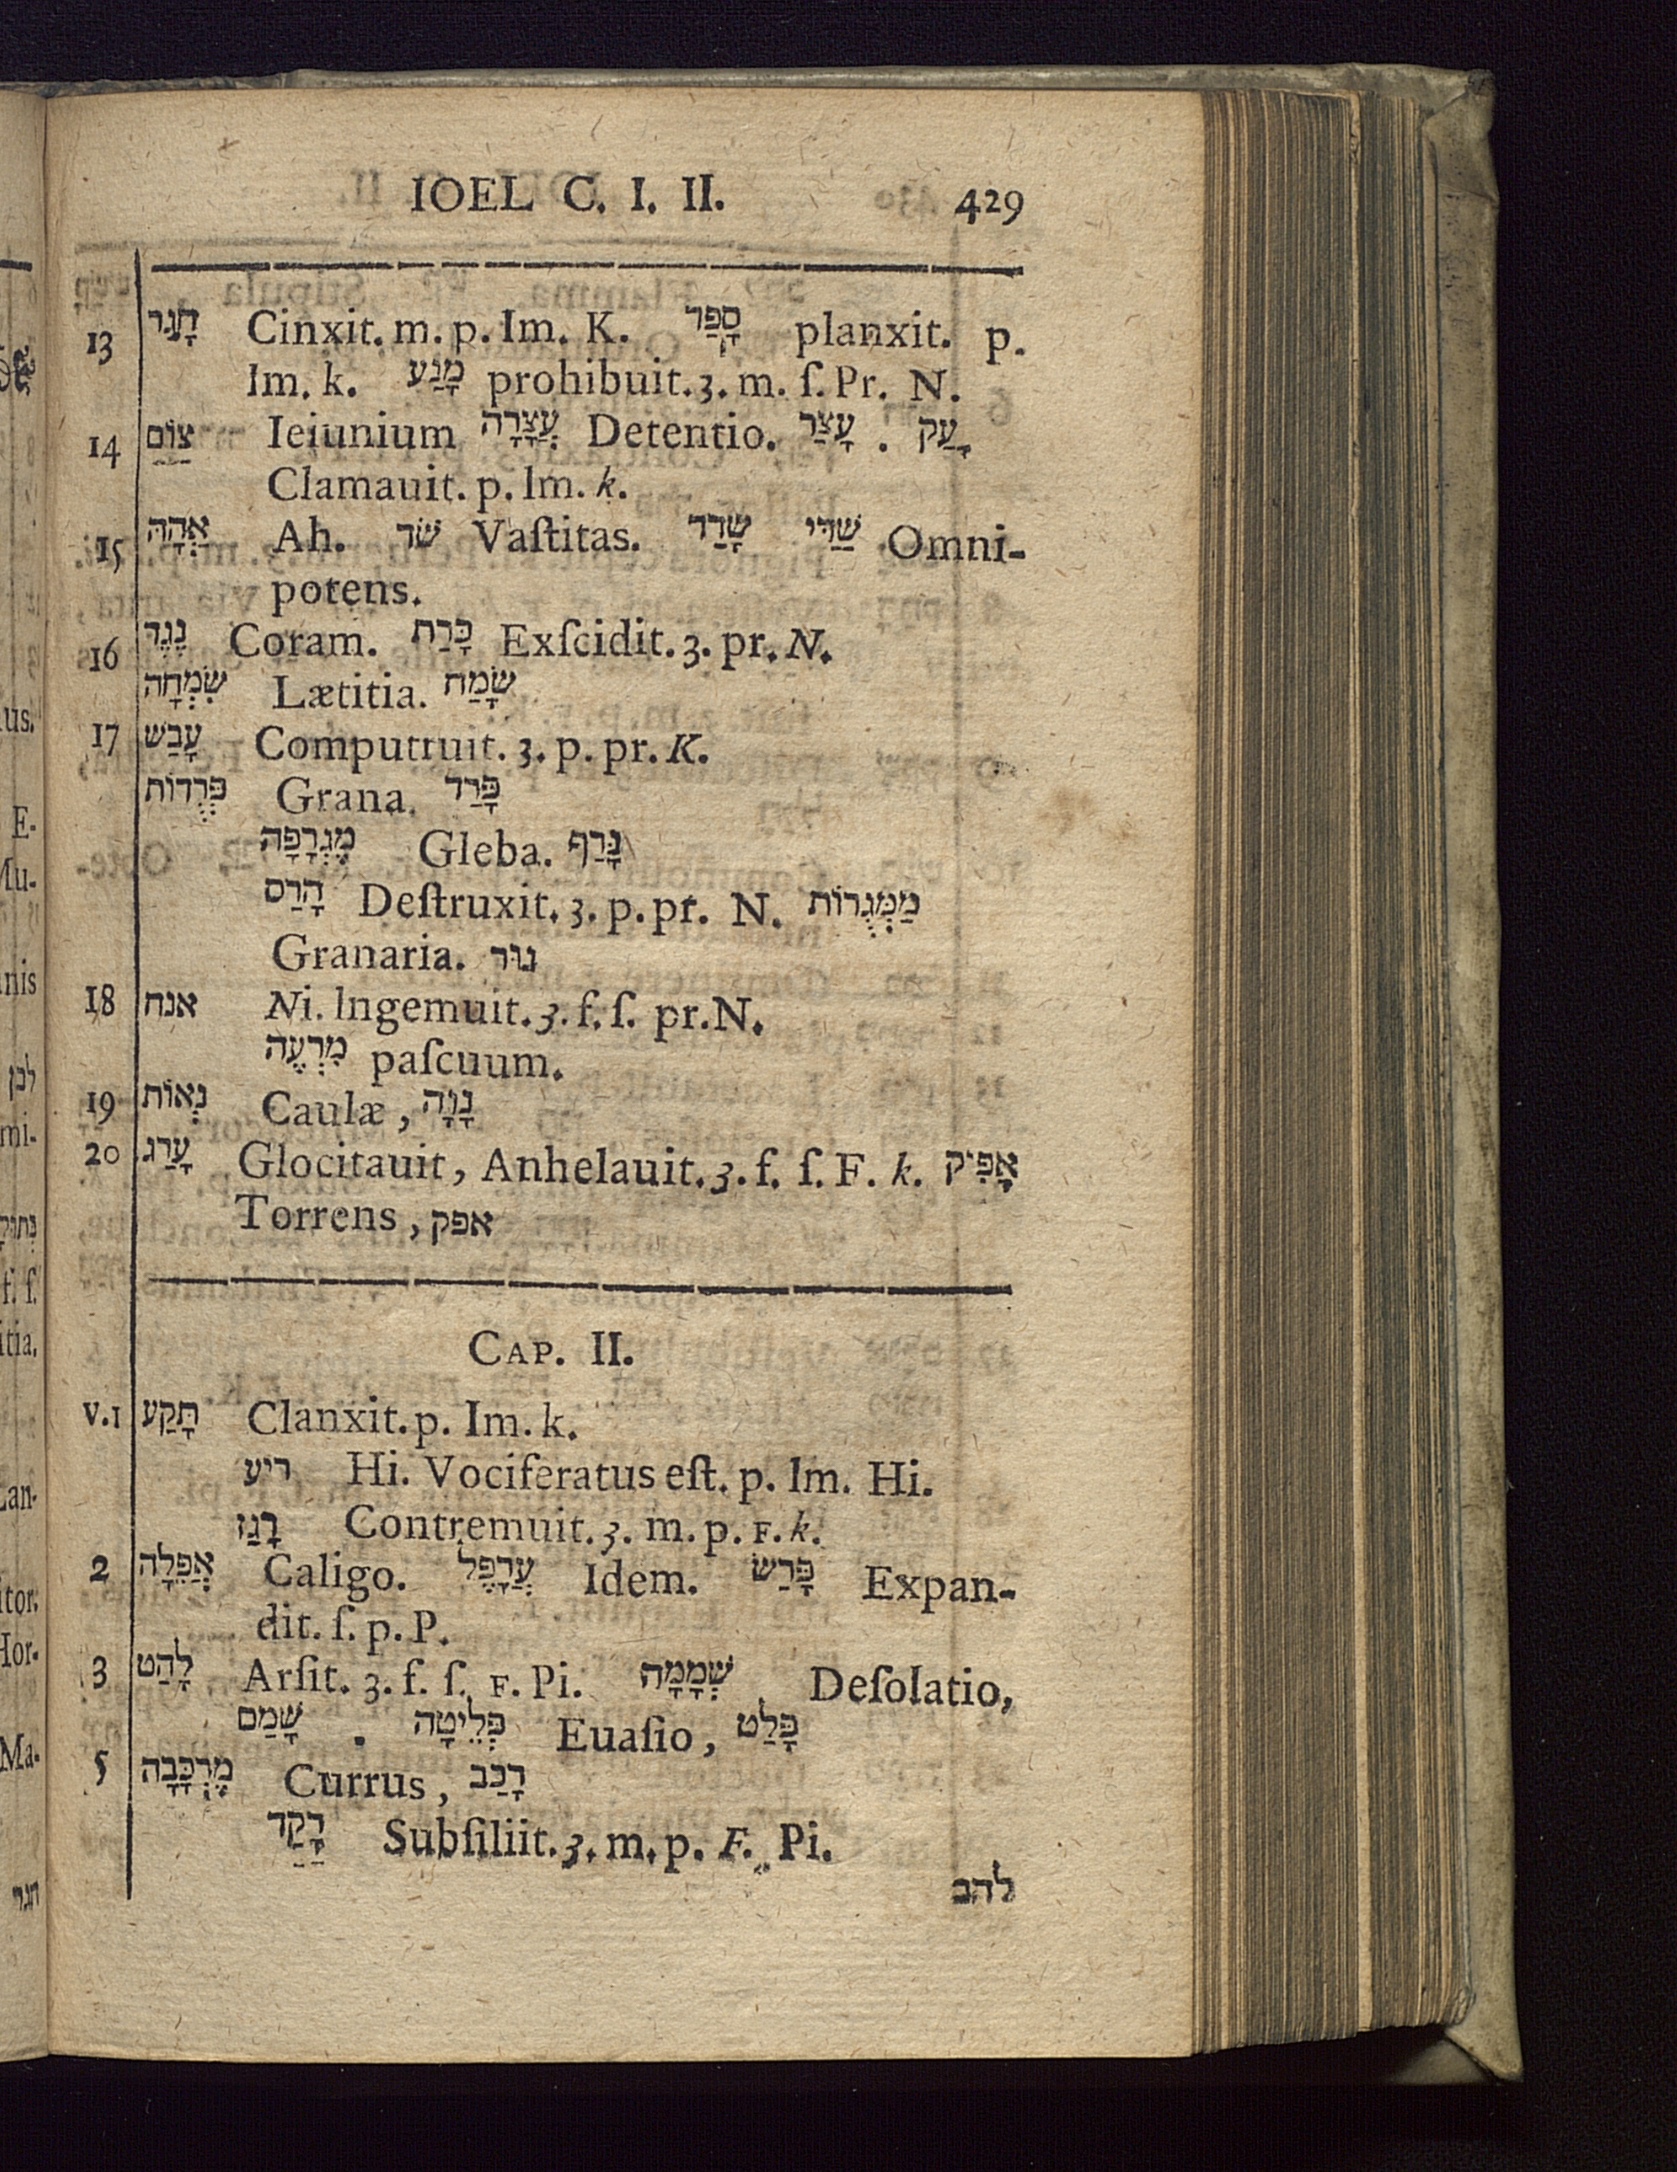 IOEL C. I. II. 429
13 חָגַר Cinxit. m. p. Im. K. סָפַד planxit. p.
Im. k. מָנַע prohibuit. 3. m. ſ. Pr. N.
14 צוֹם Ieiunium עֲצָרָה Detentio. עָצַר . זָעַק
Clamauit. p. Im. k.
15 אֲהָהּ Ah. שֹׁד Vaſtitas. שָׁדַד שַׁדַּי Omni-
potens.
16 נֶגֶד Coram. כָּרַת Exſcidit. 3. pr. N.
שִׂמְחָה Lætitia. שָׂמַח
17 עָבַשׁ Computruit. 3. p. pr. K.
פְּרֻדוֹת Grana. פָּרַד
מֶגְרָפָה Gleba. גָּרַף
הָרַס Deſtruxit. 3. p. pr. N. מַמְּגֻרוֹת
Granaria. גור
18 אנח Ni. Ingemuit. 3. f. ſ. pr. N.
מִרְעֶה paſcuum.
19 נְאוֹת Caulæ, נָוָה
20 עָרַג Glocitauit, Anhelauit. 3. f. ſ. F. k. אָפִיק
Torrens, אפק
CAP. II.
V. 1 תָּקַע Clanxit. p. Im. k.
ריע Hi. Vociferatus eſt. p. Im. Hi.
רָגַז Contremuit. 3. m. p. F. k.
2 אֲפֵלָה Caligo. עֲרָפֶל Idem. פָּרַשׂ Expan-
dit. ſ. p. P.
3 לָהַט Arſit. 3. f. ſ. F. Pi. שְׁמָמָה Deſolatio,
שָׁמַם . פְּלֵיטָה Euaſio, פָּלַט
5 מֶרְכָּבָה Currus, רָכַב
רָקַד Subſiliit. 3. m. p. F. Pi.
להב